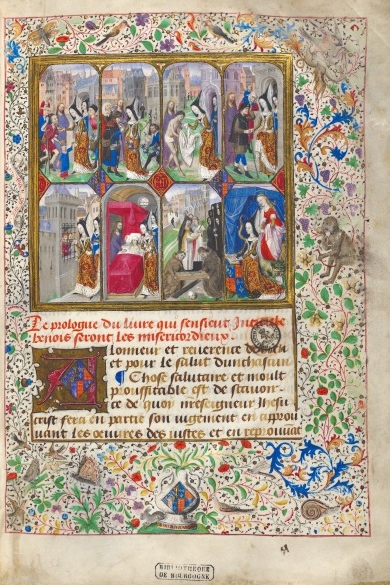 Le prologue du livre qui sensieut Intitule
benois seront les misericordieux.
lonneur et reverence de
et pour le salut dunchascun
Chose salutaire et moult
prouffitable est de scavoir
ce de quoy nreseigneur Ihesu
crist fera en partie son iugement en approu
uant les oeuvres des justes et en reprouvāt
BIBLIOTHEQUE
DE BOURGOGNE